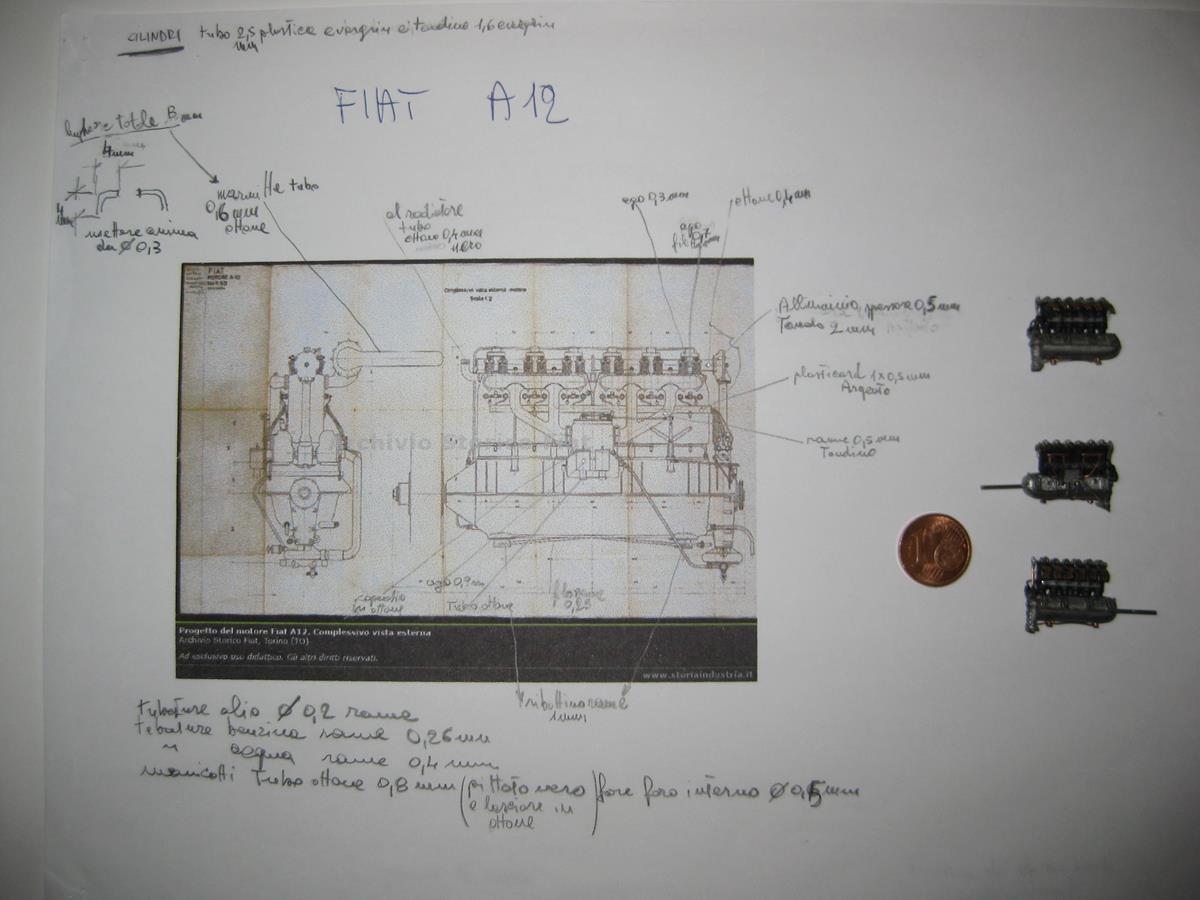 CILINDRI tubo 2,5 plastica evergrin e tondino 1,6 evergrin
mm
FIAT A12
totale 8 mm
4mm
marmitte tubo
0,6 mm
ottone
mettere anima
da Ø 0,3
al radiatore
tubo
ottone 0,4 mm
nero
ago 0,3 mm
ottone 0,4 mm
ago
0,7
Alluminio spessore 0,5 mm
Tondo 2 mm
plasticard 1x0,5 mm
Argento
rame 0,5 mm
Tondino
FIAT
MOTORE A-12
Complessivo vista esterna motore
Scala 1:2
Archivio Storico Fiat
ago 0,9 mm
in ottone
Tubo ottone
0,25
Progetto del motore Fiat A12. Complessivo vista esterna
Archivio Storico Fiat, Torino (TO)
Ad esclusivo uso didattico. Gli altri diritti riservati.
www.storiaindustria.it
ribattino rame
1mm
tubature olio Ø 0,2 rame
tubature benzina rame 0,26 mm
" acqua rame 0,4 mm
manicotti Tubo ottone 0,8 mm (pittato nero e lasciare in ottone) fare foro interno Ø 0,6 mm
1